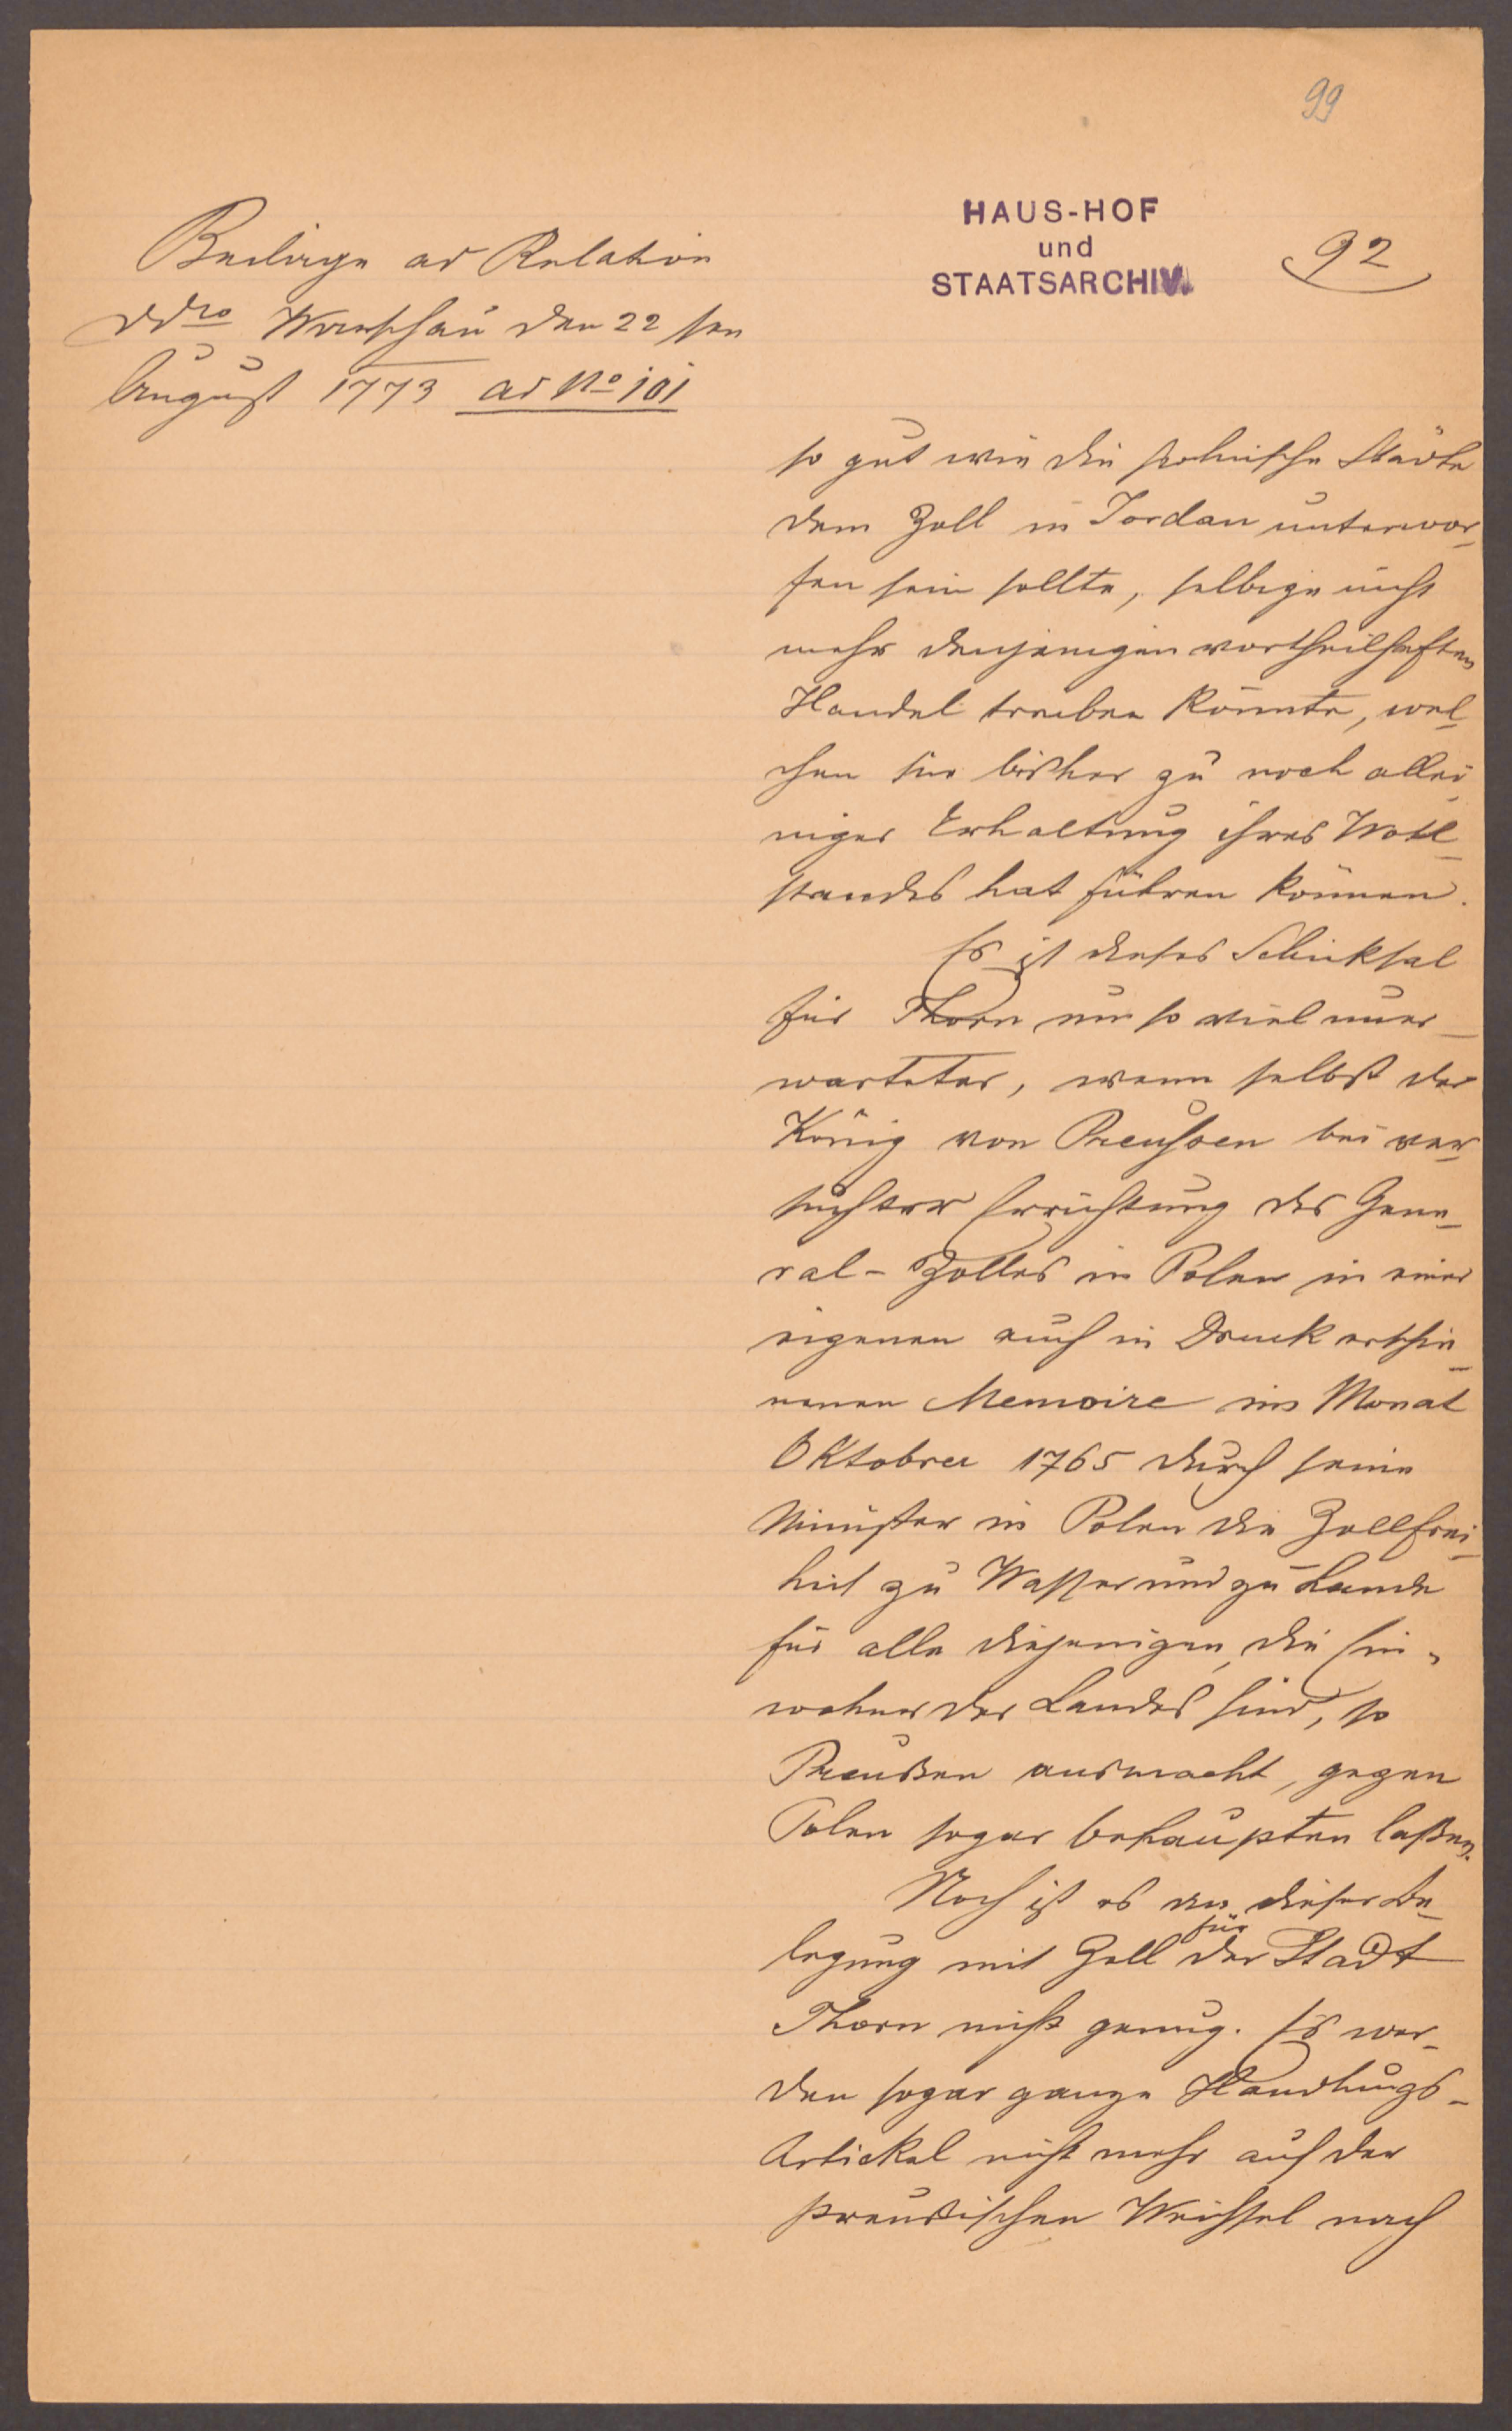 99
HAUS-HOF
und
STAATSARCHIV.
92
Beilage ad Relation
ddro Warschau den 22 ten
August 1773 ad No 101
so gut wie die polnische Städte
dem Zoll in Fordan unterwor-
fen sein sollte, selbige nicht
mehr denjenigen vortheilhaften
Handel treiben könnte, wel-
chen sie bisher zu noch allei-
niger Erhaltung ihres Wohl-
standes hat führen können.
Es ist dieses Schicksal
für Thorn um so viel uner-
warteter, wenn selbst der
König von Preussen bei ver-
suchter Errichtung des Gene-
ral-Zolles in Polen in einer
eigenen auch in Druck erschie-
nenen Memoire im Monat
Oktober 1765 durch seine
Minister in Polen die Zollfrei-
heit zu Wasser und zu Lande
für alle diejenigen, die Ein-
wohner der Landes sind, so
Preußen ausmacht, gegen
Polen sogar behaupten laßen.
Noch ist es an dieser Be-
legung mit Zoll für der Stadt
Thorn nicht genug. Es wer-
den sogar ganze Handlungs-
Artickel nicht mehr auf der
preußischen Weichsel nach